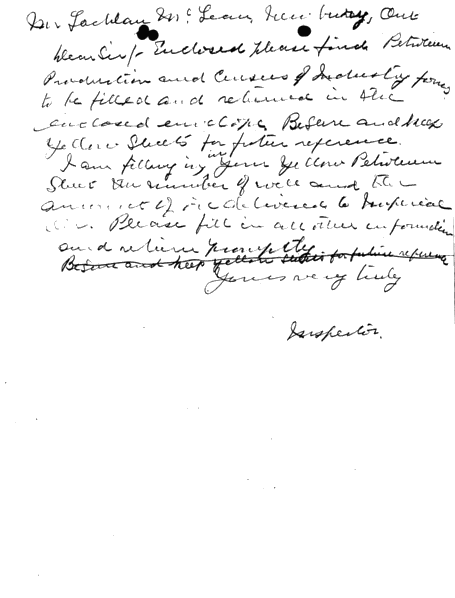 Mr Lachlan McLean Newbury, Ont
Dear Sir/- Enclosed please find Petroleum
Production and Census of Industry forms
to be filled and returned in the
enclosed envelope. Be sure and keep
yellow sheets for future reference.
I am filling in in your yellow Petroleum
Sheet the number of well and the
amount of oil delivered to Imperial
Please fill in all other information
and return promptly
Be sure and keep yellow sheets for future reference
Yours very truly
Inspector.